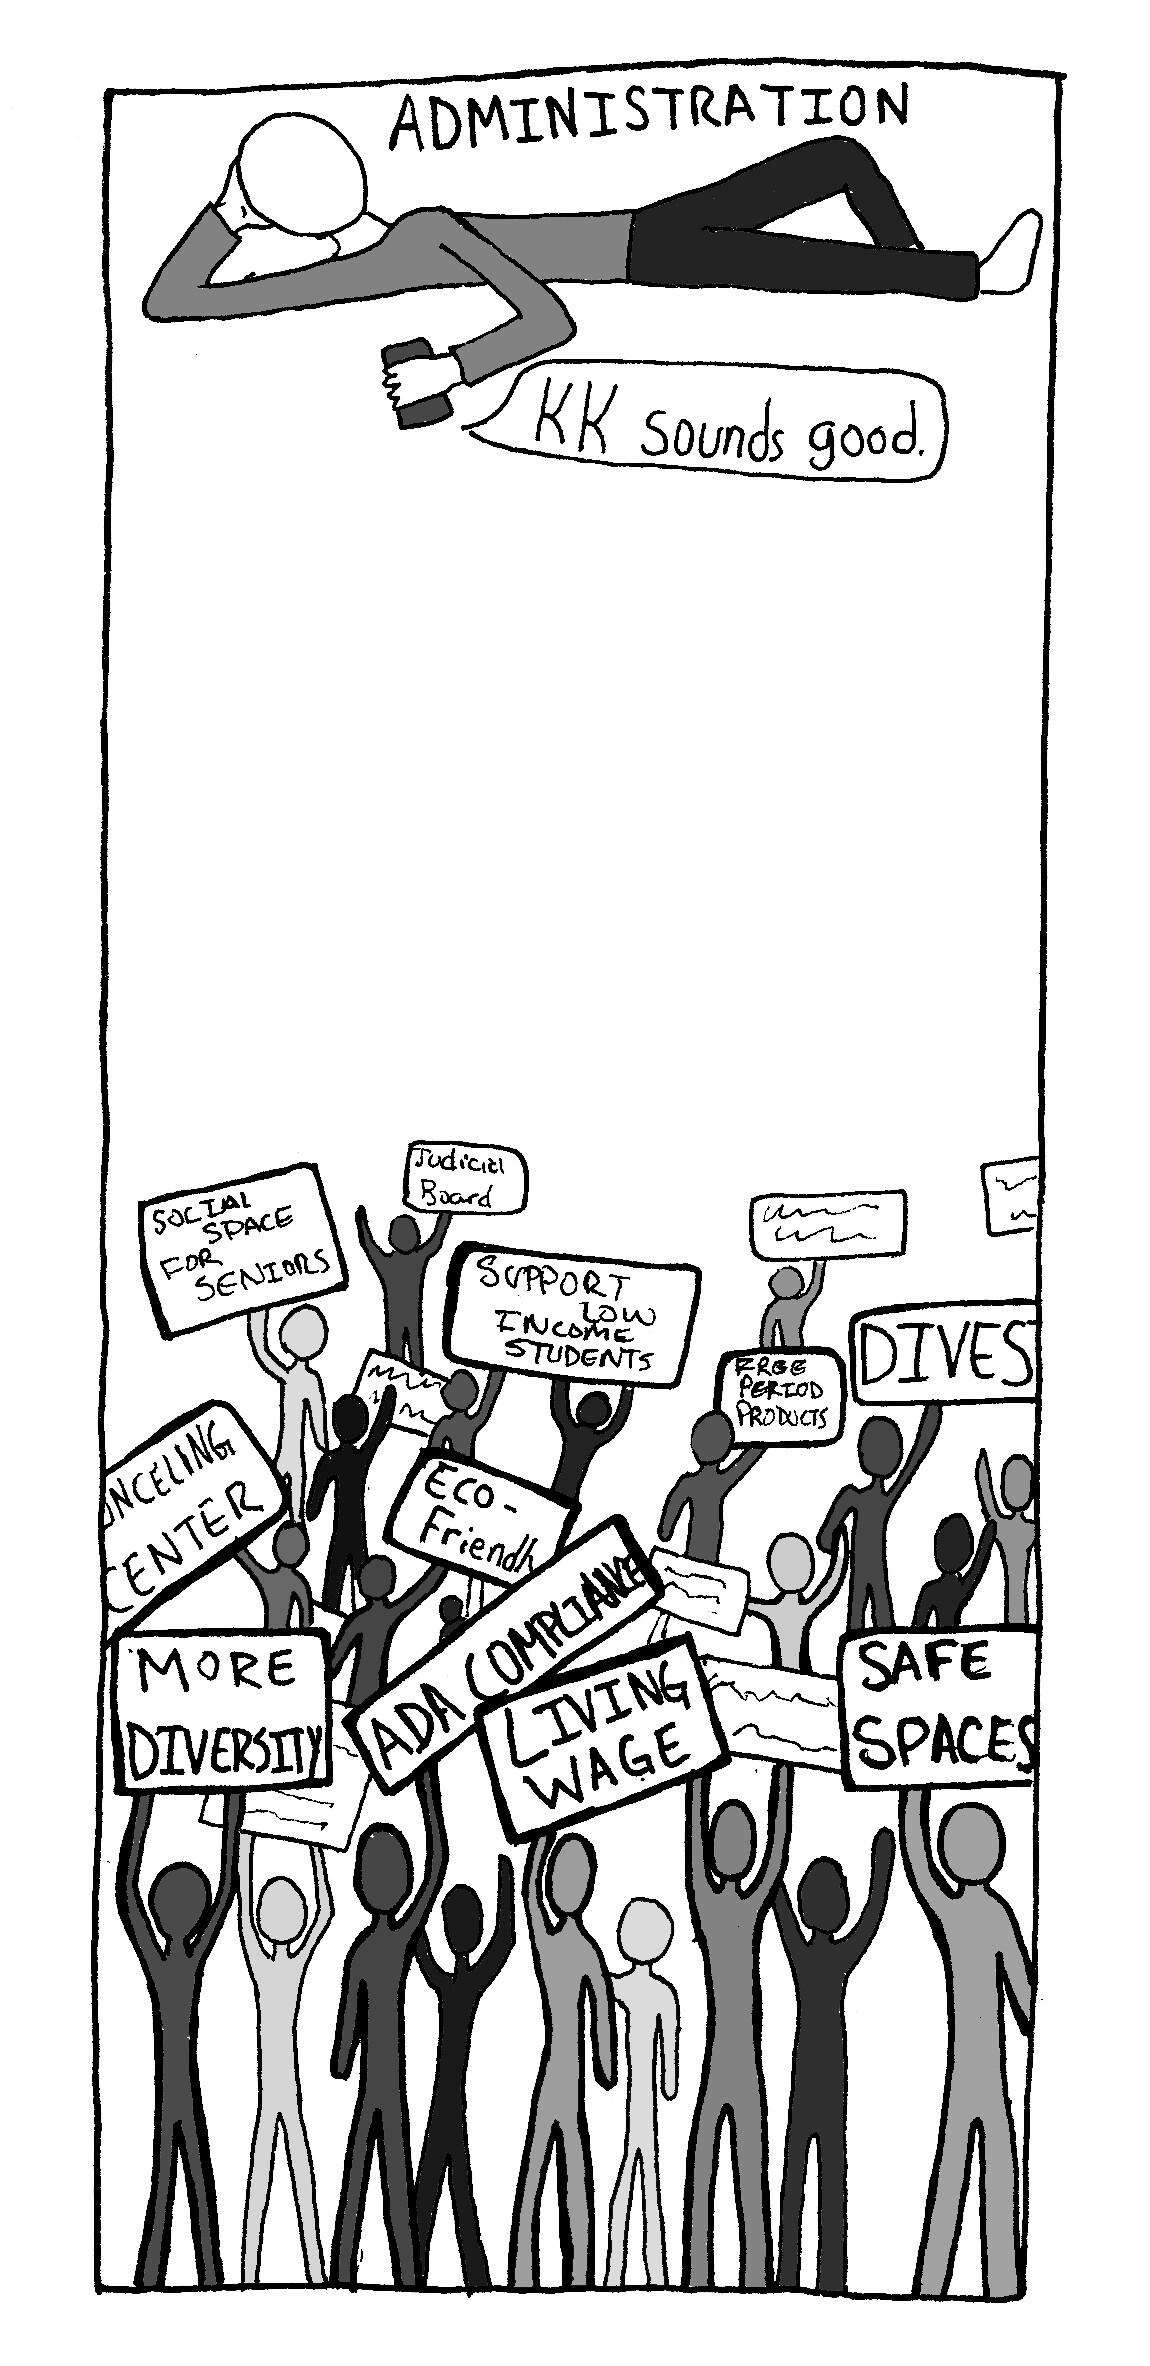 ADMINISTRATION
KK sounds good.
Judicial
Board
SOCIAL
SPACE
FOR
SENIORS
SUPPORT
LOW
INCOME
STUDENTS
FREE
PERIOD
PRODUCTS
DIVES
UNCELING
CENTER
ECO-
Friendly
ADA COMPLIANCE
MORE
DIVERSITY
LIVING
WAGE
SAFE
SPACES